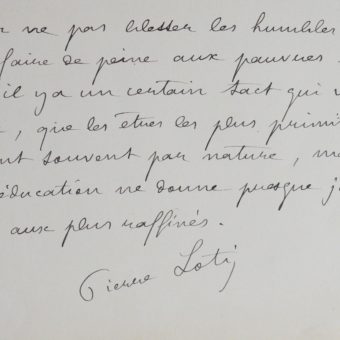 r ne pas blesser les humbles
faire de peine aux pauvres
il y a un certain tact qui
, que les êtres les plus primi
nt souvent par nature, m
éducation ne donne presque j
aux plus raffinés.
Pierre Loti